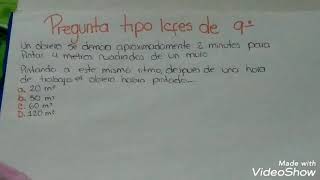 Pregunta tipo Icfes de 9°
Un obrero se demora aproximadamente 2 minutos para
Pintar 4 metros cuadrados de un muro
Pintando a este mismo ritmo, despues de una hora
de trabajo el obrero habra pintado...
a. 20 m²
b. 50 m²
c. 60 m²
D. 120 m²
Made with
VideoShow